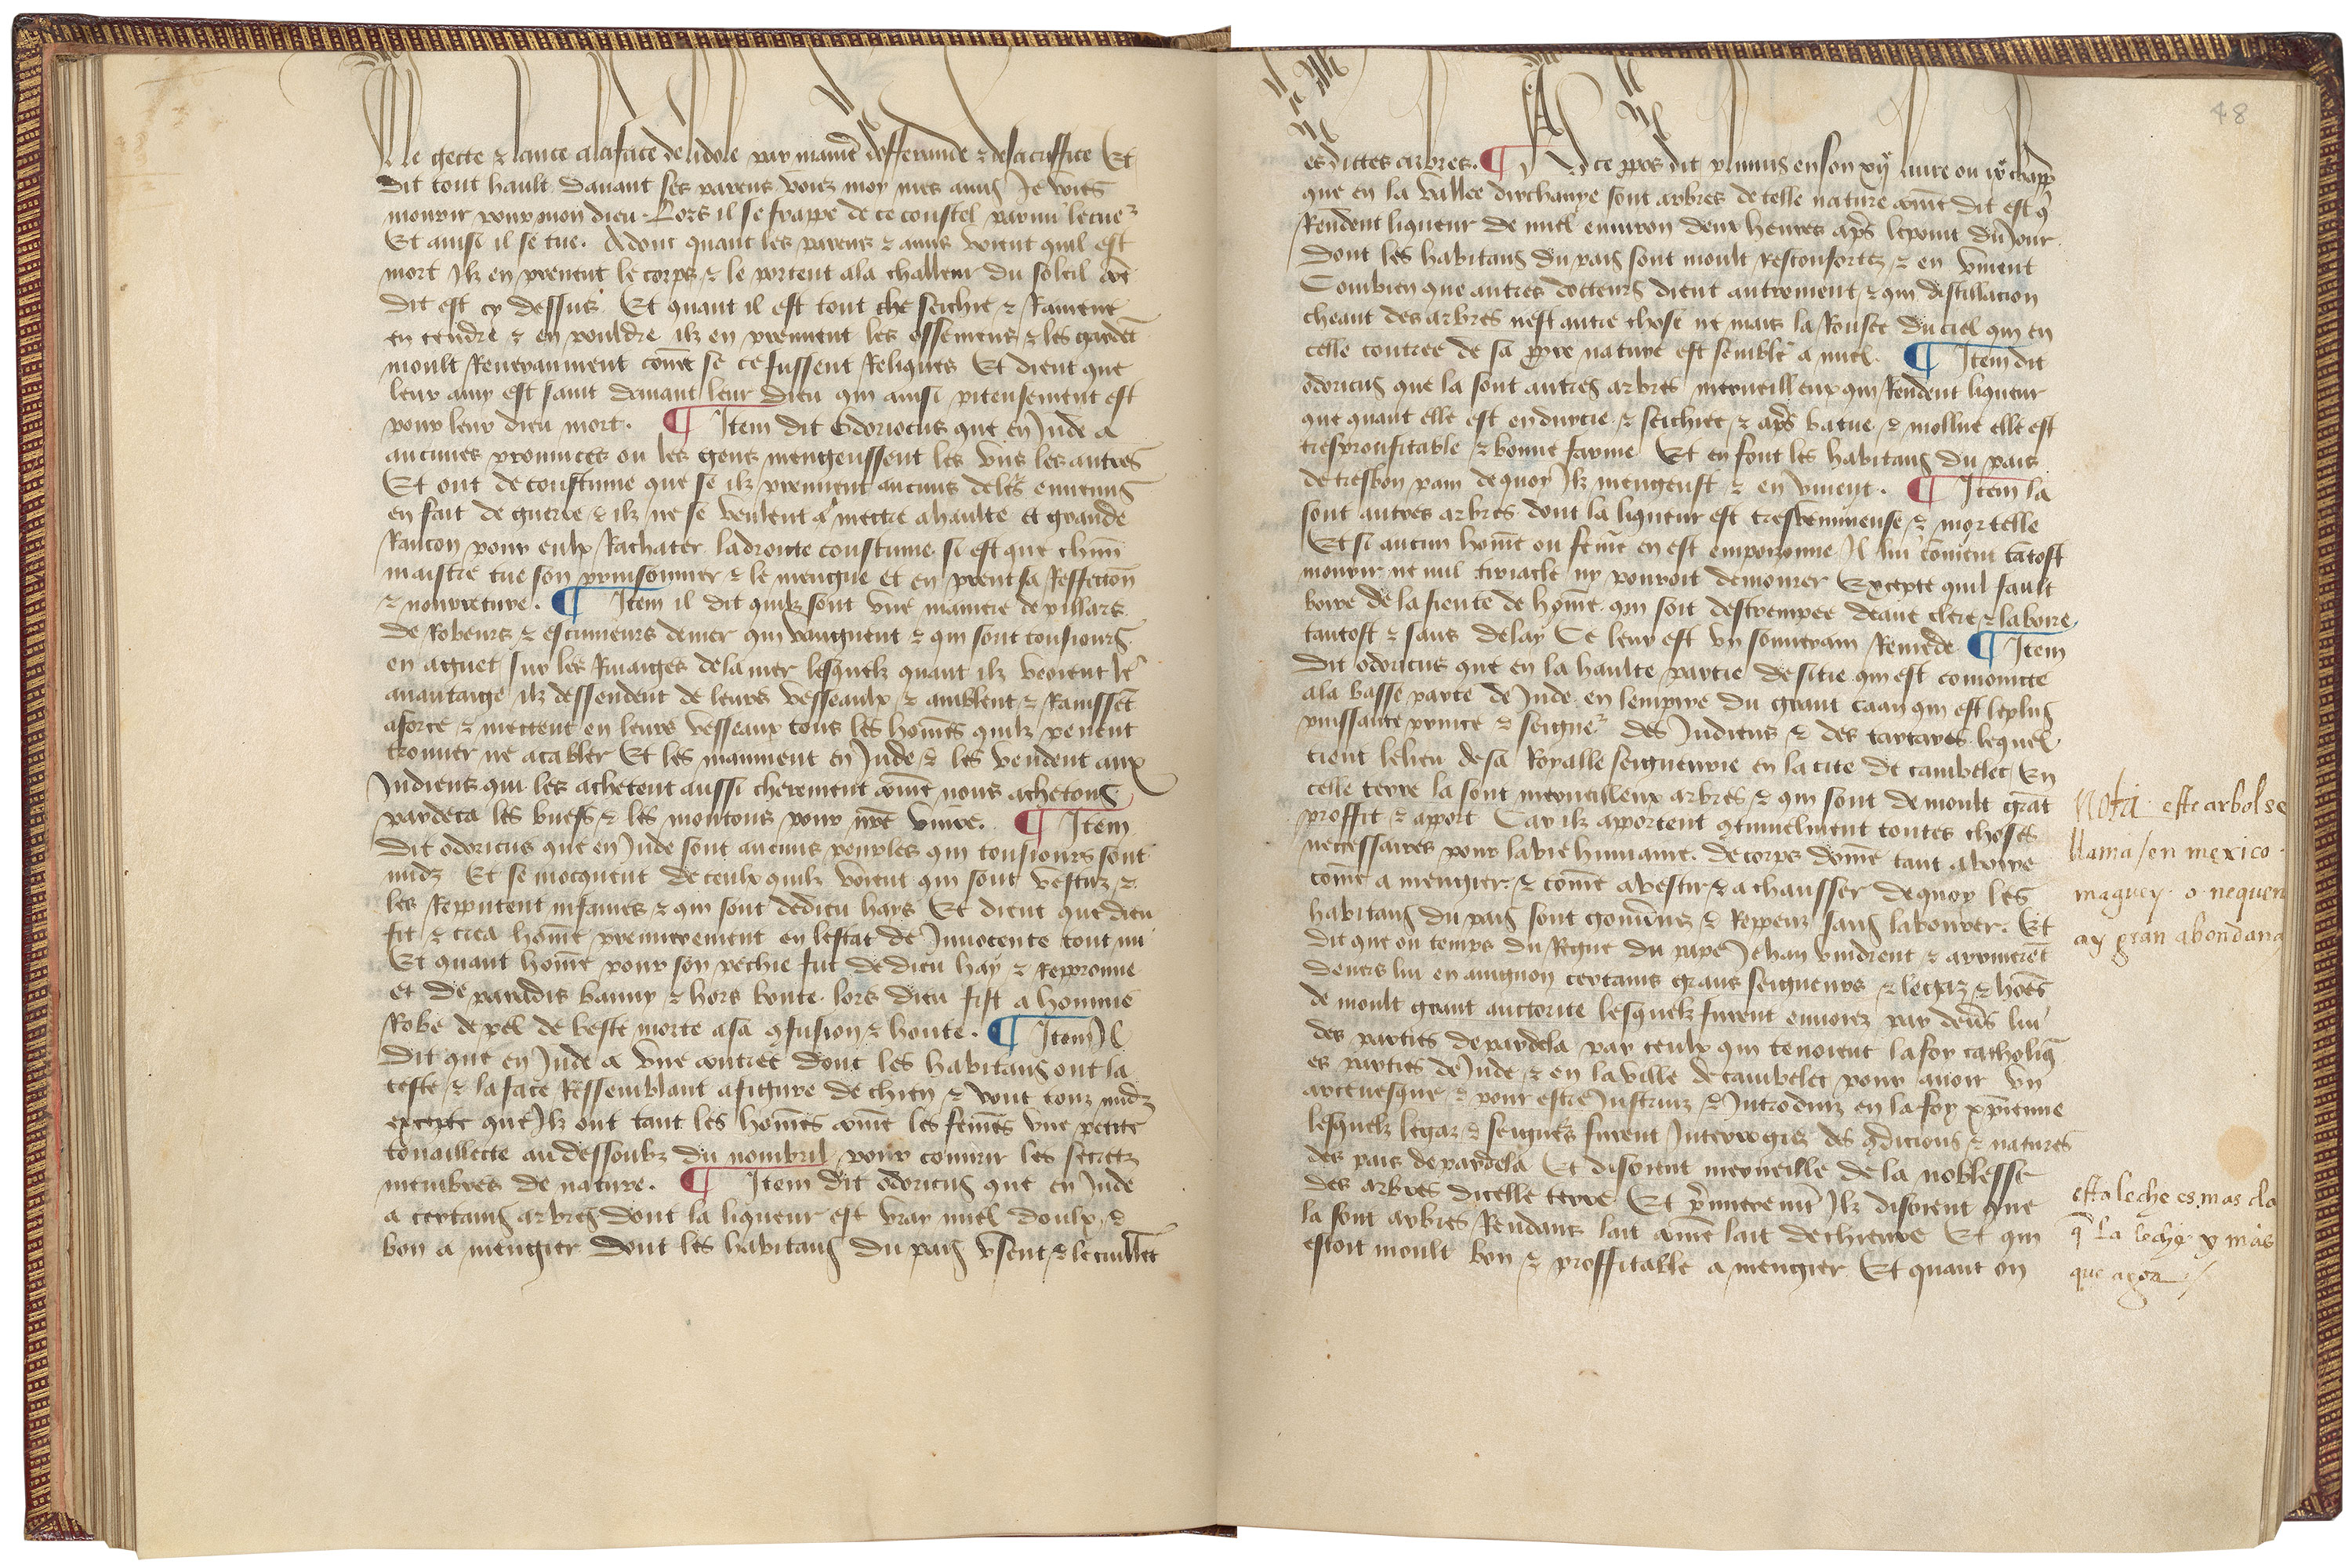 le gecte et lance a la face de lidole par manie͂ doffrande et de sacriffice Et
dit tout hault davant ses parens voiez moy mes amis Je vois
mourir pour mon dieu. Lors il se frappe de ce coustel parmi le cue͂
Et ainsi il se tue. Adonc quant les parens et amis voient quil est
mort Ilz en prenent le corps et le portent ala challeur du soleil co͂e
dit est cy dessus Et quant il est tout seichie et Ramene
en cendre et en pouldre ilz en prennent les ossemens et les garde͂t
moult Reveranment co͂me se ce fussent Reliques Et dient que
leur amy est saint devant leur dieu qui ainsi piteusement est
pour leur dieu mort. ¶ Item dit Odoricus que en Inde a
aucunes provinces ou les gens mengeussent les uns les autres
Et ont de coustume que se ilz prennent aucuns de le͂s ennemis
en fait de guerre et ilz ne se veulent mettre a haulte et grande
Rancon pour eulx Rachater la droite coustume si est que chu͂
maistre tue son prinsonnier et le mengue et en prent sa Reffection
et nourreture. ¶ Item il dit quilz sont une maniere de pillars
de Robeurs et escumeurs de mer qui vaguent et qui sont tousiours
en aguet sur les Rivaiges de la mer lesquelz quant ilz veoient le͂
avantaige ilz dessendent de leurs vesseaulx et amblent et Ravisse͂t
a force et mettent en leurs vesseaux tous les ho͂mes quilz pevent
trouver ne acabler Et les mainnent en Inde et les vendent aux
Indiens qui les achetent aussi cherement co͂me nous achetons
pardeca les buefs et les moutons pour n͂re vivre. ¶ Item
dit odoricus que en Inde sont aucuns peuples qui tousiours sont
nudz Et se mocquent de ceulx quilz voient qui sont vestuz et
les Repputent infames et qui sont de dieu hays Et dient que dieu
fit et crea ho͂me premierement en lestat de Innocence tout nu
Et quant ho͂me pour son pechie fut de dieu hay et Repprouve
et de paradis banny et hors boute. lors dieu fist a homme
Robe de pel de beste morte a sa 9fusion et honte. ¶ Item Il
dit que en Inde a une contree dont les habitans ont la
teste et la face Ressemblant a figure de chien et vont tous nudz
excepte que Ilz ont tant les ho͂mes co͂me les fem͂es une petite
touaillecte au dessoubz du nombril pour couvrir les secretz
membres de nature. ¶ Item dit odoricus que en Inde
a certains arbres dont la liqueur est vray miel doulx et
bon a mengier dont les habitans du pais usent et le cuille͂t
48
es dittes arbres. ¶ A ce ppos dit plinius en son xij͂ livre ou iiij͂ chapp͂
que en la vallee dirchanye sont arbres de telle nature co͂me dit est q͂
Rendent liqueur de miel environ deux heures ap͂s le point du Jour
dont les habitans du pais sont moult Resconfortez et en vivent
Combien que autres docteurs dient autrement et que distillacion
cheant des arbres nest autre chose ne mais la Rousee du ciel qui en
celle contree de sa ppre nature est semble͂ a miel. ¶ Item dit
odoricus que la sont autres arbres merveilleux qui Rendent liqueur
que quant elle est endurcie et seichiee et ap͂s batue et mollue elle est
tresproufitable et bonne farine Et en font les habitans du pais
de tresbon pain de quoy Ilz mengeust et en vivent. ¶ Item la
sont autres arbres dont la liqueur est tresvenimeuse et mortelle
Et si aucun hom͂e ou fem͂e en est empoisonne Il lui convient ta͂tost
mourir ne nul tiriacle ny pouroit demourer Excepte quil fault
boire de la fiente de ho͂me qui soit destrempee deaue clere et la boire
tantost et sans delay Ce leur est un souverain Remede ¶ Item
dit odoricus que en la haulte partie de sitie qui est comomitte
ala basse parte de Inde en lempire du grant caan qui est le plus
puissante prince et seigne͂ des Indiens et des tartares lequel
tient le lieu de sa Royalle seigneurie en la cite de cambelec En
celle terre la sont merveilleux arbres et qui sont de moult gra͂t
proffit et aport Car ilz aportent 9tinuelment toutes choses
necessaires pour la vie humaine. de corps do͂me tant a boire
com͂e a mengier et com͂e a vestir et a chausser de quoy les
habitans du pais sont gouvernes et Reppeuz sans labourer. Et
dit que ou temps du Regne du pape Jehan vindrent et arriverent
devers lui en avignon certains grans seigneurs et legaz et ho͂es
de moult grant auctorite lesquelz furent envoiez par deve͂s lui
des parties de pardela par ceulx qui tenoient la foy catholiq͂
es parties de Inde et en la ville de cambelec pour avoir un
arcevesque et pour estre Instruiz et Introduiz en la foy xp͂ienne
lesquelz legaz et seigne͂s furent Interrogiez des 9dicions et natures
des pais de pardela Et disoient merveille de la noblesse
des arbres dicelle terre Et p͂mierem͂t Ilz disoient que
la sont arbres Rendans lait com͂e lait de chievre Et qui
estoit moult bon et proffitable a mengier Et quant on
Nota este arbol se
llama / en mexico
maguey o nequen
ay gran abondana
esta leche es mas cla
q͂ la leche y mas
que agoa